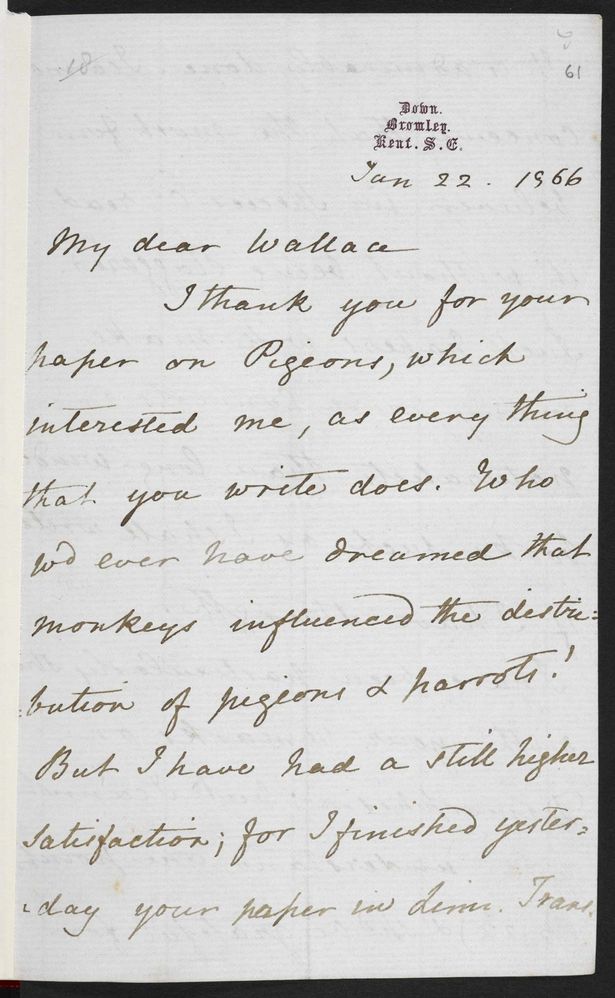 18
61
Down.
Bromley.
Kent. S. E.
Jan 22. 1866
My dear Wallace
I thank you for your
paper on Pigeons, which
interested me, as every thing
that you write does. Who
wd ever have dreamed that
monkeys influenced the distri=
=bution of pigeons & parrots!
But I have had a still higher
satisfaction; for I finished yester=
=day your paper in Linn. Trans.